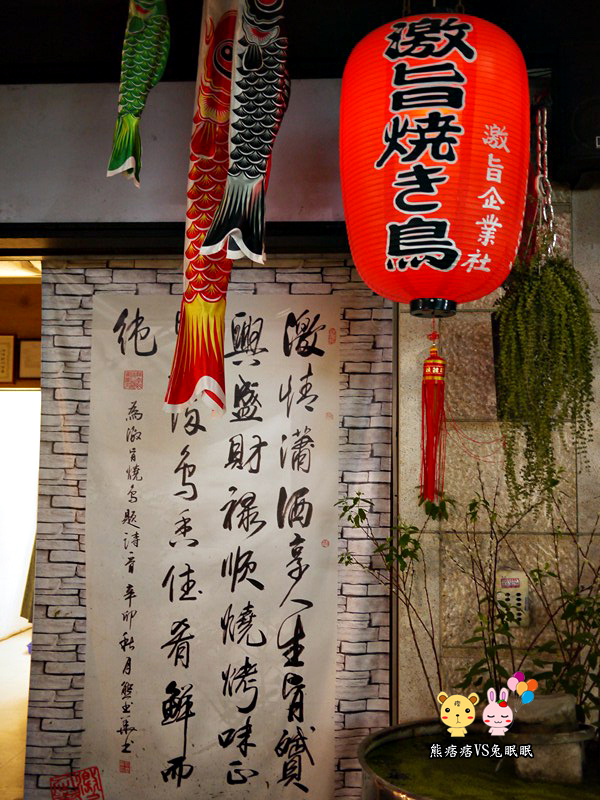 激旨焼き鳥
激旨企業社
激情瀟洒享人生旨
興盛財祿順燒烤味正
鳥香佳肴鮮而
為激旨燒鳥題詩一首 辛卯秋月
熊痞痞VS兔眠眠